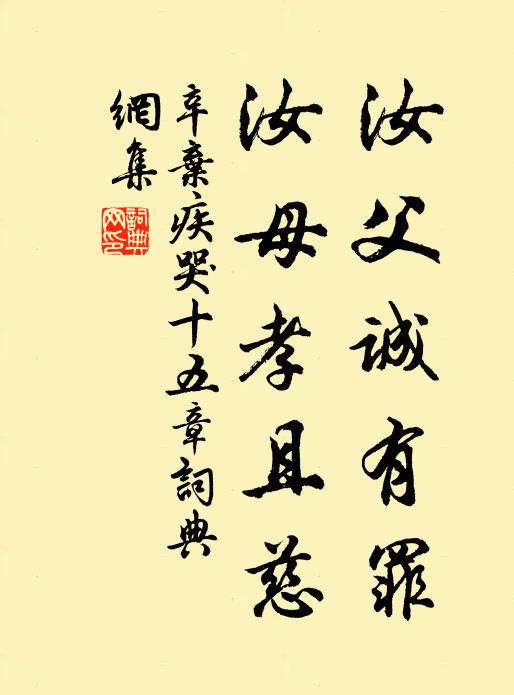 汝父誠有罪
汝母孝且慈
辛棄疾哭十五章詞典
網集
詞典
网印